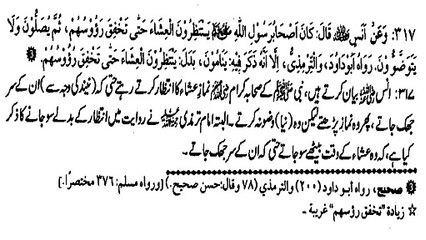 ٣١٧: وَعَنْ أَنَسٍ ﷺ قَالَ: كَانَ أَصْحَابُ رَسُولِ اللهِ ﷺ يَنْتَظِرُونَ الْعِشَاءَ حَتَّى تَخْفِقَ رُؤُوسُهُمْ، ثُمَّ يُصَلُّونَ وَلَا
يَتَوَضَّؤُونَ. رَوَاهُ أَبُوْدَاوُدَ، وَالتِّرْمِذِيُّ، إِلَّا أَنَّهُ ذَكَرَ فِيهِ: يَنَامُونَ، بَدَلَ: يَنْتَظِرُونَ الْعِشَاءَ حَتَّى تَخْفِقَ رُؤُوسُهُمْ.
٣١٧: انس ﷺ بیان کرتے ہیں، نبی ﷺ کے صحابہ کرام نماز عشاء کا انتظار کرتے رہتے حتی کہ (نیند کی وجہ سے) ان کے سر
جھک جاتے، پھر وہ نماز پڑھتے لیکن وہ (نیا) وضو نہ کرتے۔ البتہ امام ترمذی نے روایت میں انتظار کے بدلے سو جانے کا ذکر
کیا ہے، کہ وہ عشاء کے وقت بیٹھے سو جاتے حتی کہ ان کے سر جھک جاتے۔
صحیح، رواه أبو داود (٢٠٠) والترمذي (٧٨ وقال: حسن صحيح.) [ورواه مسلم: ٣٧٦ مختصرًا.]
☆ زيادة "تخفق رؤسهم" غريبة۔